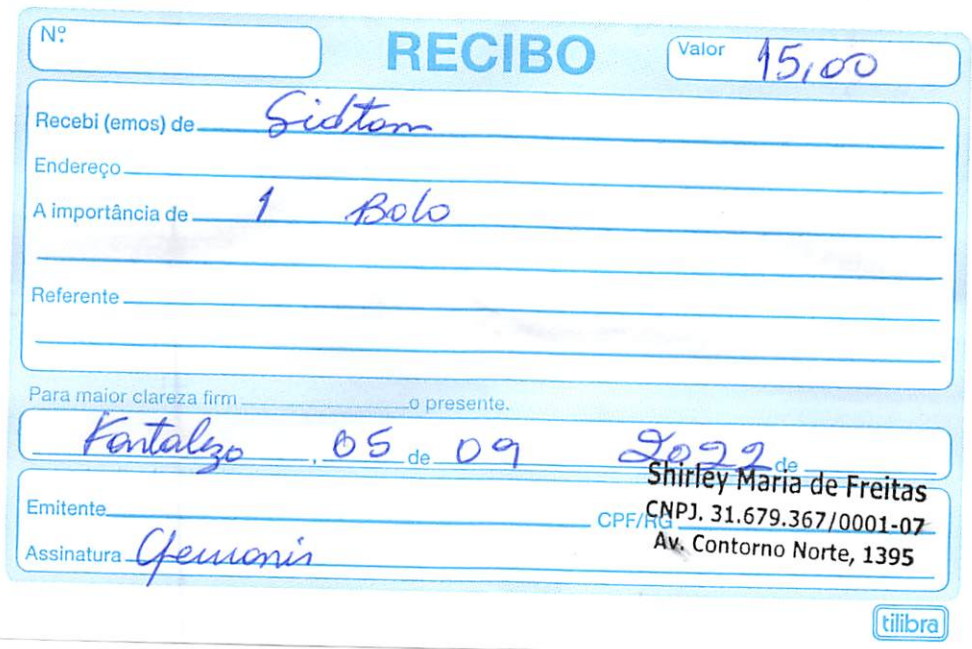 Nº RECIBO Valor 15,00
Recebi (emos) de Sidtom
Endereço
A importância de 1 Bolo
Referente
Para maior clareza firm o presente.
Fortaleza, 05 de 09 2022 de
Shirley Maria de Freitas
Emitente CPF/RG CNPJ. 31.679.367/0001-07
Av. Contorno Norte, 1395
Assinatura
tilibra